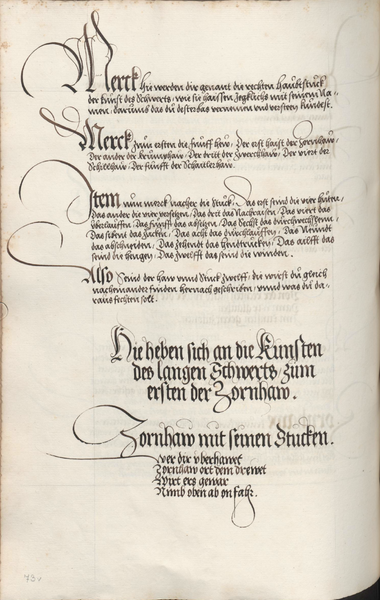 Merck hie werden dir genant die rechten Haubtstuck
der kunst des Schwerts, wie sie haissen yegklichs mit seinem Na-
men, darumb das du dester bas vernemen und versteen kundest.
Merck zum ersten die funff hew, Der erst haist der Zornhaw,
Der ander der krumphaw, Der dritt der Zwerchhaw, Der viert der
Schilhaw, Der funfft der Schaitlerhaw.
Item nun merck nacher die stuck, Das erst send die vier huten,
Das ander die vier versetzen, Das drit das Nachraisen, Das viert das
uberlauffen, Das funfft das absetzen, Das Sechst das durchwechslenn,
Das sibent das zucken, Das acht das durchlauffen, Das Neundt
das abschneiden, Das Zehendt das henndtrucken, Das ailfft das
send die hengen, Das zwelfft das send die winden.
Also Seind der haw unnd stuck zwelff, die wirst du gleich
nacheinander finden hernach geschriben, unnd was du da-
raus fechten solt.
Hie heben sich an die Kunsten
des langen Schwerts, zum
ersten der Zornhaw.
Zornhaw mit seinen Stucken.
wer dir uberhawet
Zornhaw ort dem drewet
Wirt ers gewar
Nimb oben ab on fahr.
73v